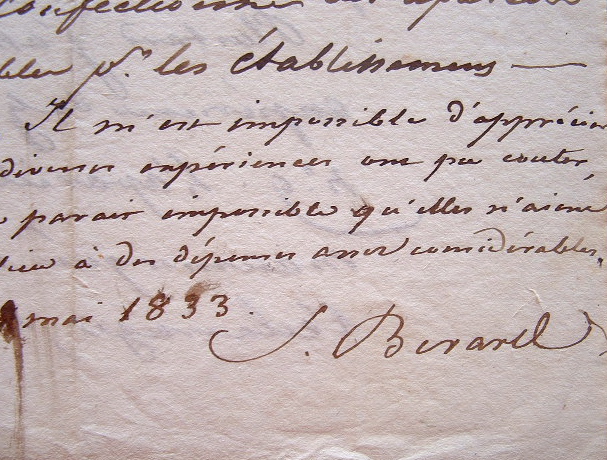 bles pr. les établissemens —
Il m'est impossible d'apprécier
diverses expériences ont pu couter,
parait impossible qu'elles n'aient
lieu à des dépenses assez considérables.
mai 1833.
J. Berard